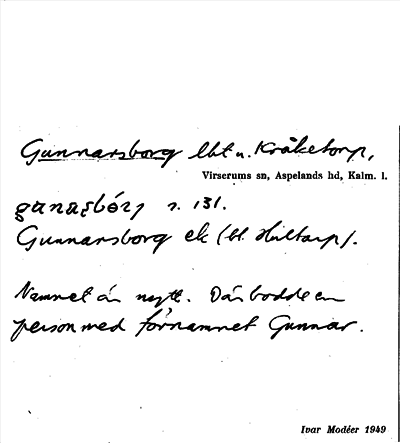 Gunnarsborg lht u. Kråketorp,
Virserums sn, Aspelands hd, Kalm. l.
s. 131.
Gunnarsborg ek (bl. Hultarp).
Namnet är nytt. Där bodde en
person med förnamnet Gunnar.
Ivar Modéer 1949